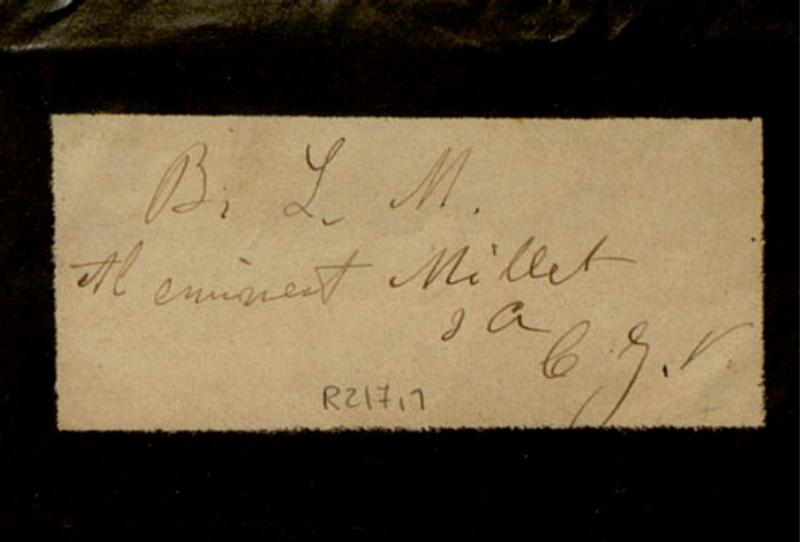 B. L. M.
Al eminent Millet
s a
C. G. V.
R217,17